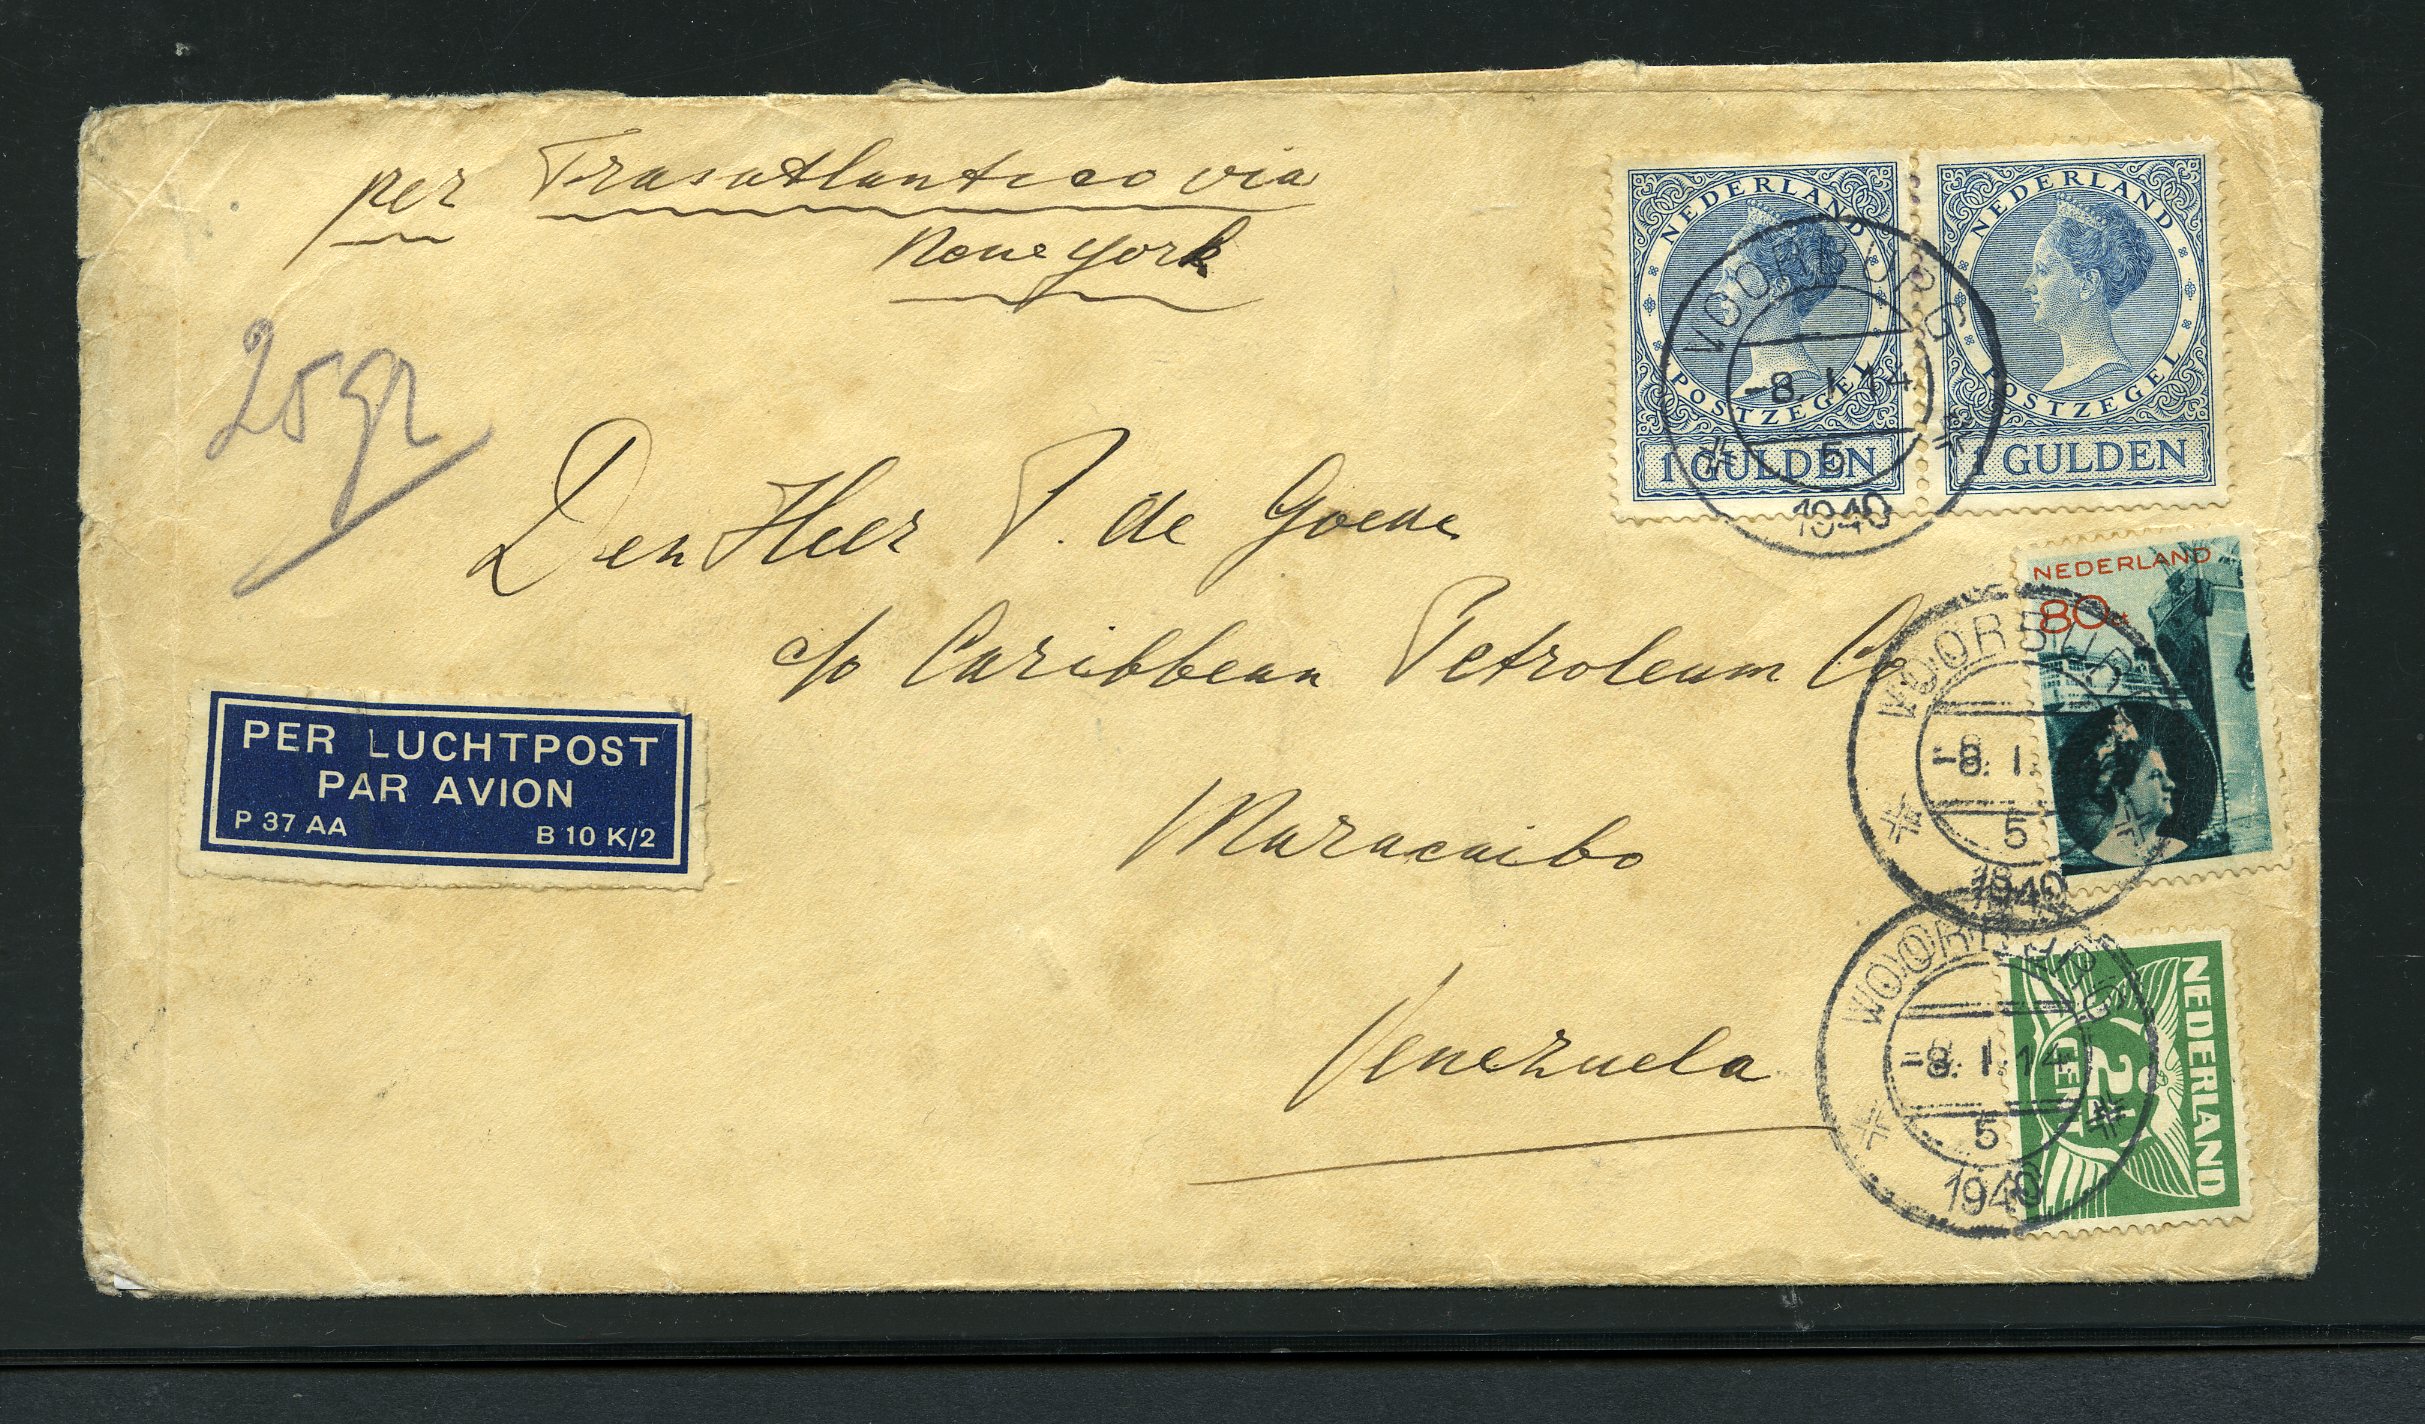 per Trasatlantico via
New York
25 gr
Den Heer P. de Goede
c/o Caribbean Petroleum Co
Maracaibo
Venezuela
PER LUCHTPOST
PAR AVION
P 37 AA B 10 K/2
NEDERLAND
POSTZEGEL
1 GULDEN
NEDERLAND
POSTZEGEL
1 GULDEN
VOORBURG
-8. 1. 14
5
1940
NEDERLAND
80 ct
VOORBURG
-8. 1.
5
1940
NEDERLAND
2½
CENT
VOORBURG
-8. 1. 14
5
1940